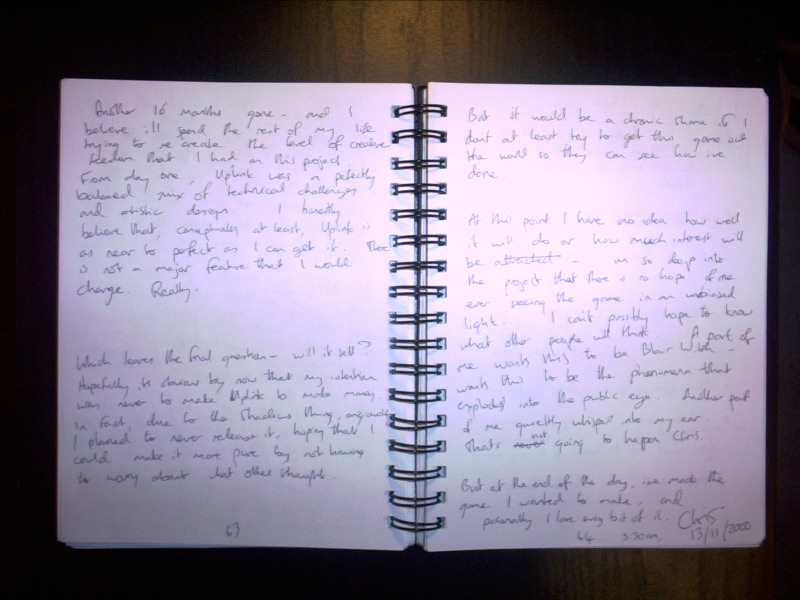 Another 16 months gone - and I
believe i'll spend the rest of my life
trying to re create the level of creative
freedom that I had on this project.
From day one, Uplink was a perfectly
balanced mix of technical challenges
and artistic design. I honestly
believe that, conceptually at least, Uplink is
as near to perfect as I can get it. There
is not a major feature that I would
change. Really.
Which leaves the final question - will it sell?
Hopefully its obvious by now that my intention
was never to make Uplink to make money.
In fact, due to the Shadows thing, originally
I planned to never release it, hoping that I
could make it more pure by not having
to worry about what others thought.
63
But it would be a chronic shame if I
dont at least try to get this game out
the world so they can see how ive
done.
At this point I have no idea how well
it will do or how much interest will
be attracted - im so deep into
the project that there is no hope of me
ever seeing the game in an unbiased
light. I can't possibly hope to know
what other people will think. A part of
me wants this to be Blair Witch -
wants this to be the phenomena that
exploded into the public eye. Another part
of me quietly whispers into my ear
thats never not going to happen Chris.
But at the end of the day, ive made the
game I wanted to make, and
personally I love every bit of it. Chris
64 5:30am, 13/11/2000